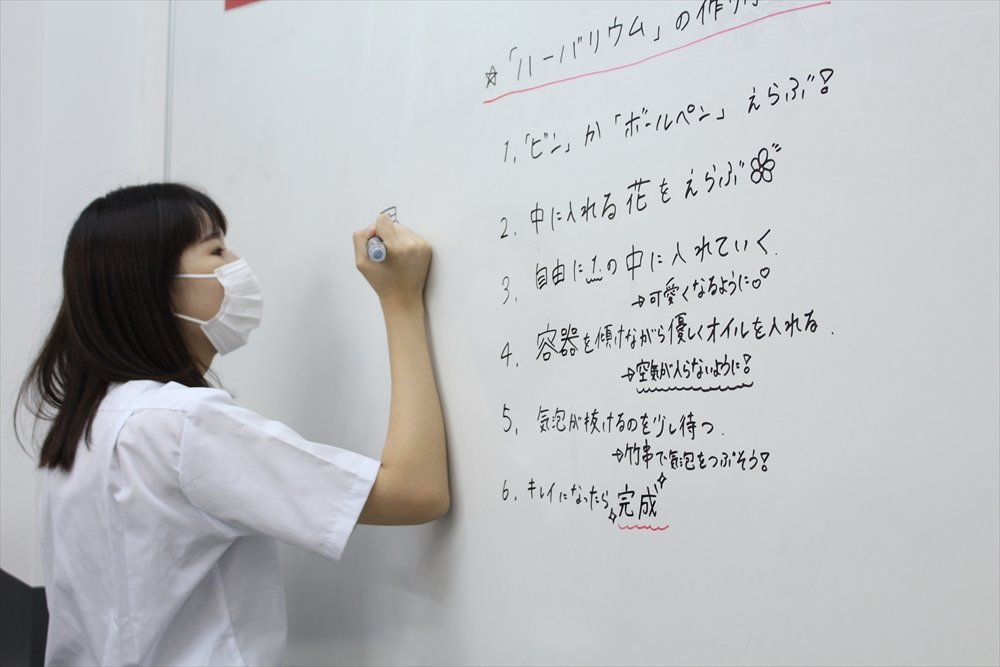 ☆「ハーバリウム」の作り方
1.「ビン」か「ボールペン」えらぶ!
2. 中に入れる花をえらぶ
3. 自由に1.の中に入れていく.
→可愛くなるように♡
4. 容器を傾けながら優しくオイルを入れる.
→空気が入らないように!
5. 気泡が抜けるのを少し待つ.
→竹串で気泡をつぶそう!
6. キレイになったら完成